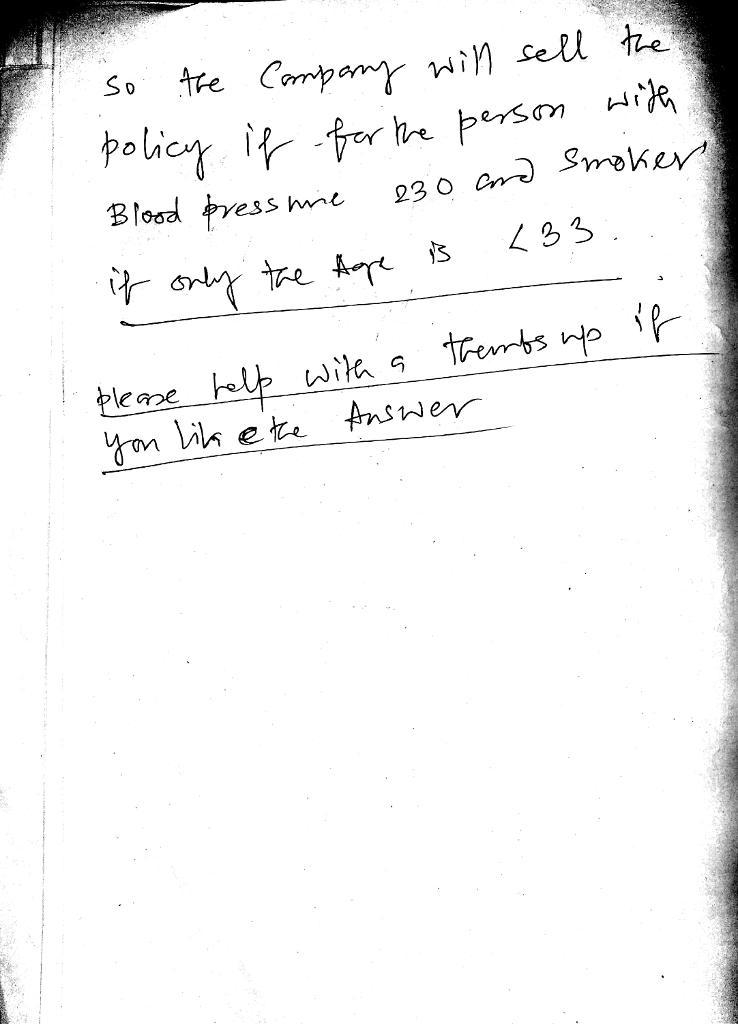 so the Company will sell the
policy if for the person with
Blood pressure 230 and smoker
if only the Age is <33.
please help with a thumbs up if
you like the Answer